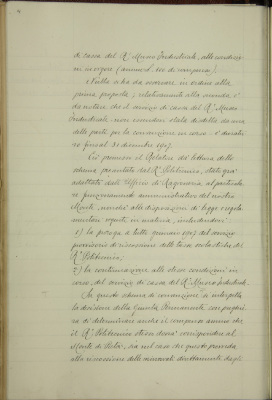 di cassa del R.° Museo Industriale, alle condizio-
ni in vigore (annue L. 400 di compenso).
Nulla vi ha da osservare in ordine alla
prima proposta; relativamente alla seconda è
da notare che il servizio di cassa del R.° Museo
Industriale non essendosi stata disdetta da una
delle parti per la convenzione in corso è durati-
vo fino al 31 dicembre 1907.
Ciò premesso il Relatore dà lettura dello
schema presentato dal R.° Politecnico, stato già
adattato dall'Ufficio di Ragioneria, al particola-
re funzionamento amministrativo del nostro
Monte, nonché alle disposizioni di legge e regola-
mentari vigenti in materia, includendovi:
1) la proroga a tutto gennaio 1907 del servizio
provvisorio di riscossione delle tasse scolastiche del
R.° Politecnico;
2) la continuazione alle stesse condizioni in
corso del servizio di cassa del R.° Museo Industriale.
Su questo schema di convenzione si interpella
la decisione della Giunta Permanente con preghie-
ra di determinare anche il compenso annuo che
il R.° Politecnico stesso dovrà corrispondere al
Monte di Pietà, sia nel caso che questo provveda
alla riscossione delle minervali direttamente dagli